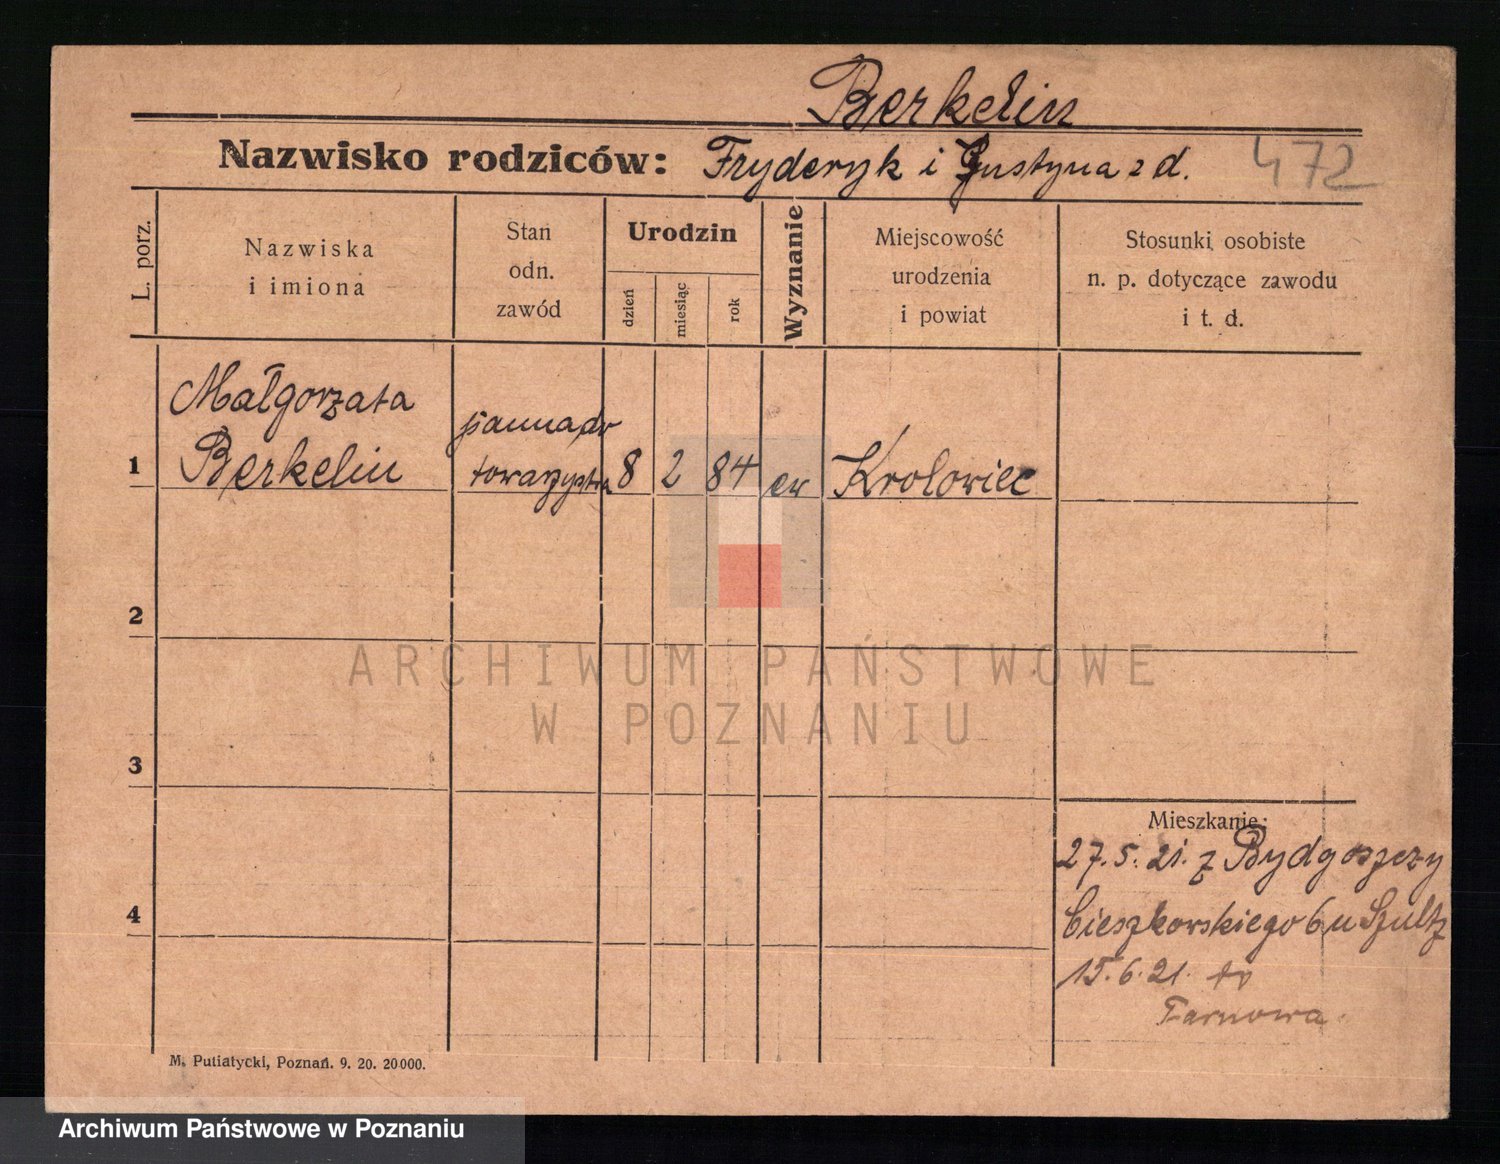 Berkelin
Nazwisko rodziców: Fryderyk i Justyna z d. 472
L. porz.
Nazwiska
i imiona
Stan
odn.
zawód
Urodzin
dzień
miesiąc
rok
Wyznanie
Miejscowość
urodzenia
i powiat
Stosunki osobiste
n. p. dotyczące zawodu
i t. d.
Małgorzata
Berkelin
panna do
towarzystwa
1
8 2 84 ew Krolowiec
2
3
4
ARCHIWUM PAŃSTWOWE
W POZNANIU
Mieszkanie:
27.5.21. z Bydgoszczy
Cieszkowskiego 6 u Szultz
15.6.21. do
Tarnowa.
M. Putiatycki, Poznań. 9. 20. 20000.
Archiwum Państwowe w Poznaniu